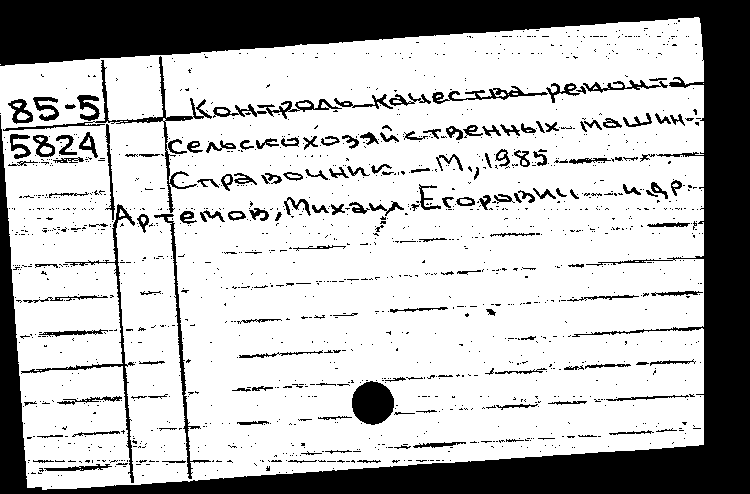 85-5
5824
Контроль качества ремонта
сельскохозяйственных машин:
Справочник. – М., 1985
Артемов, Михаил Егорович и др.